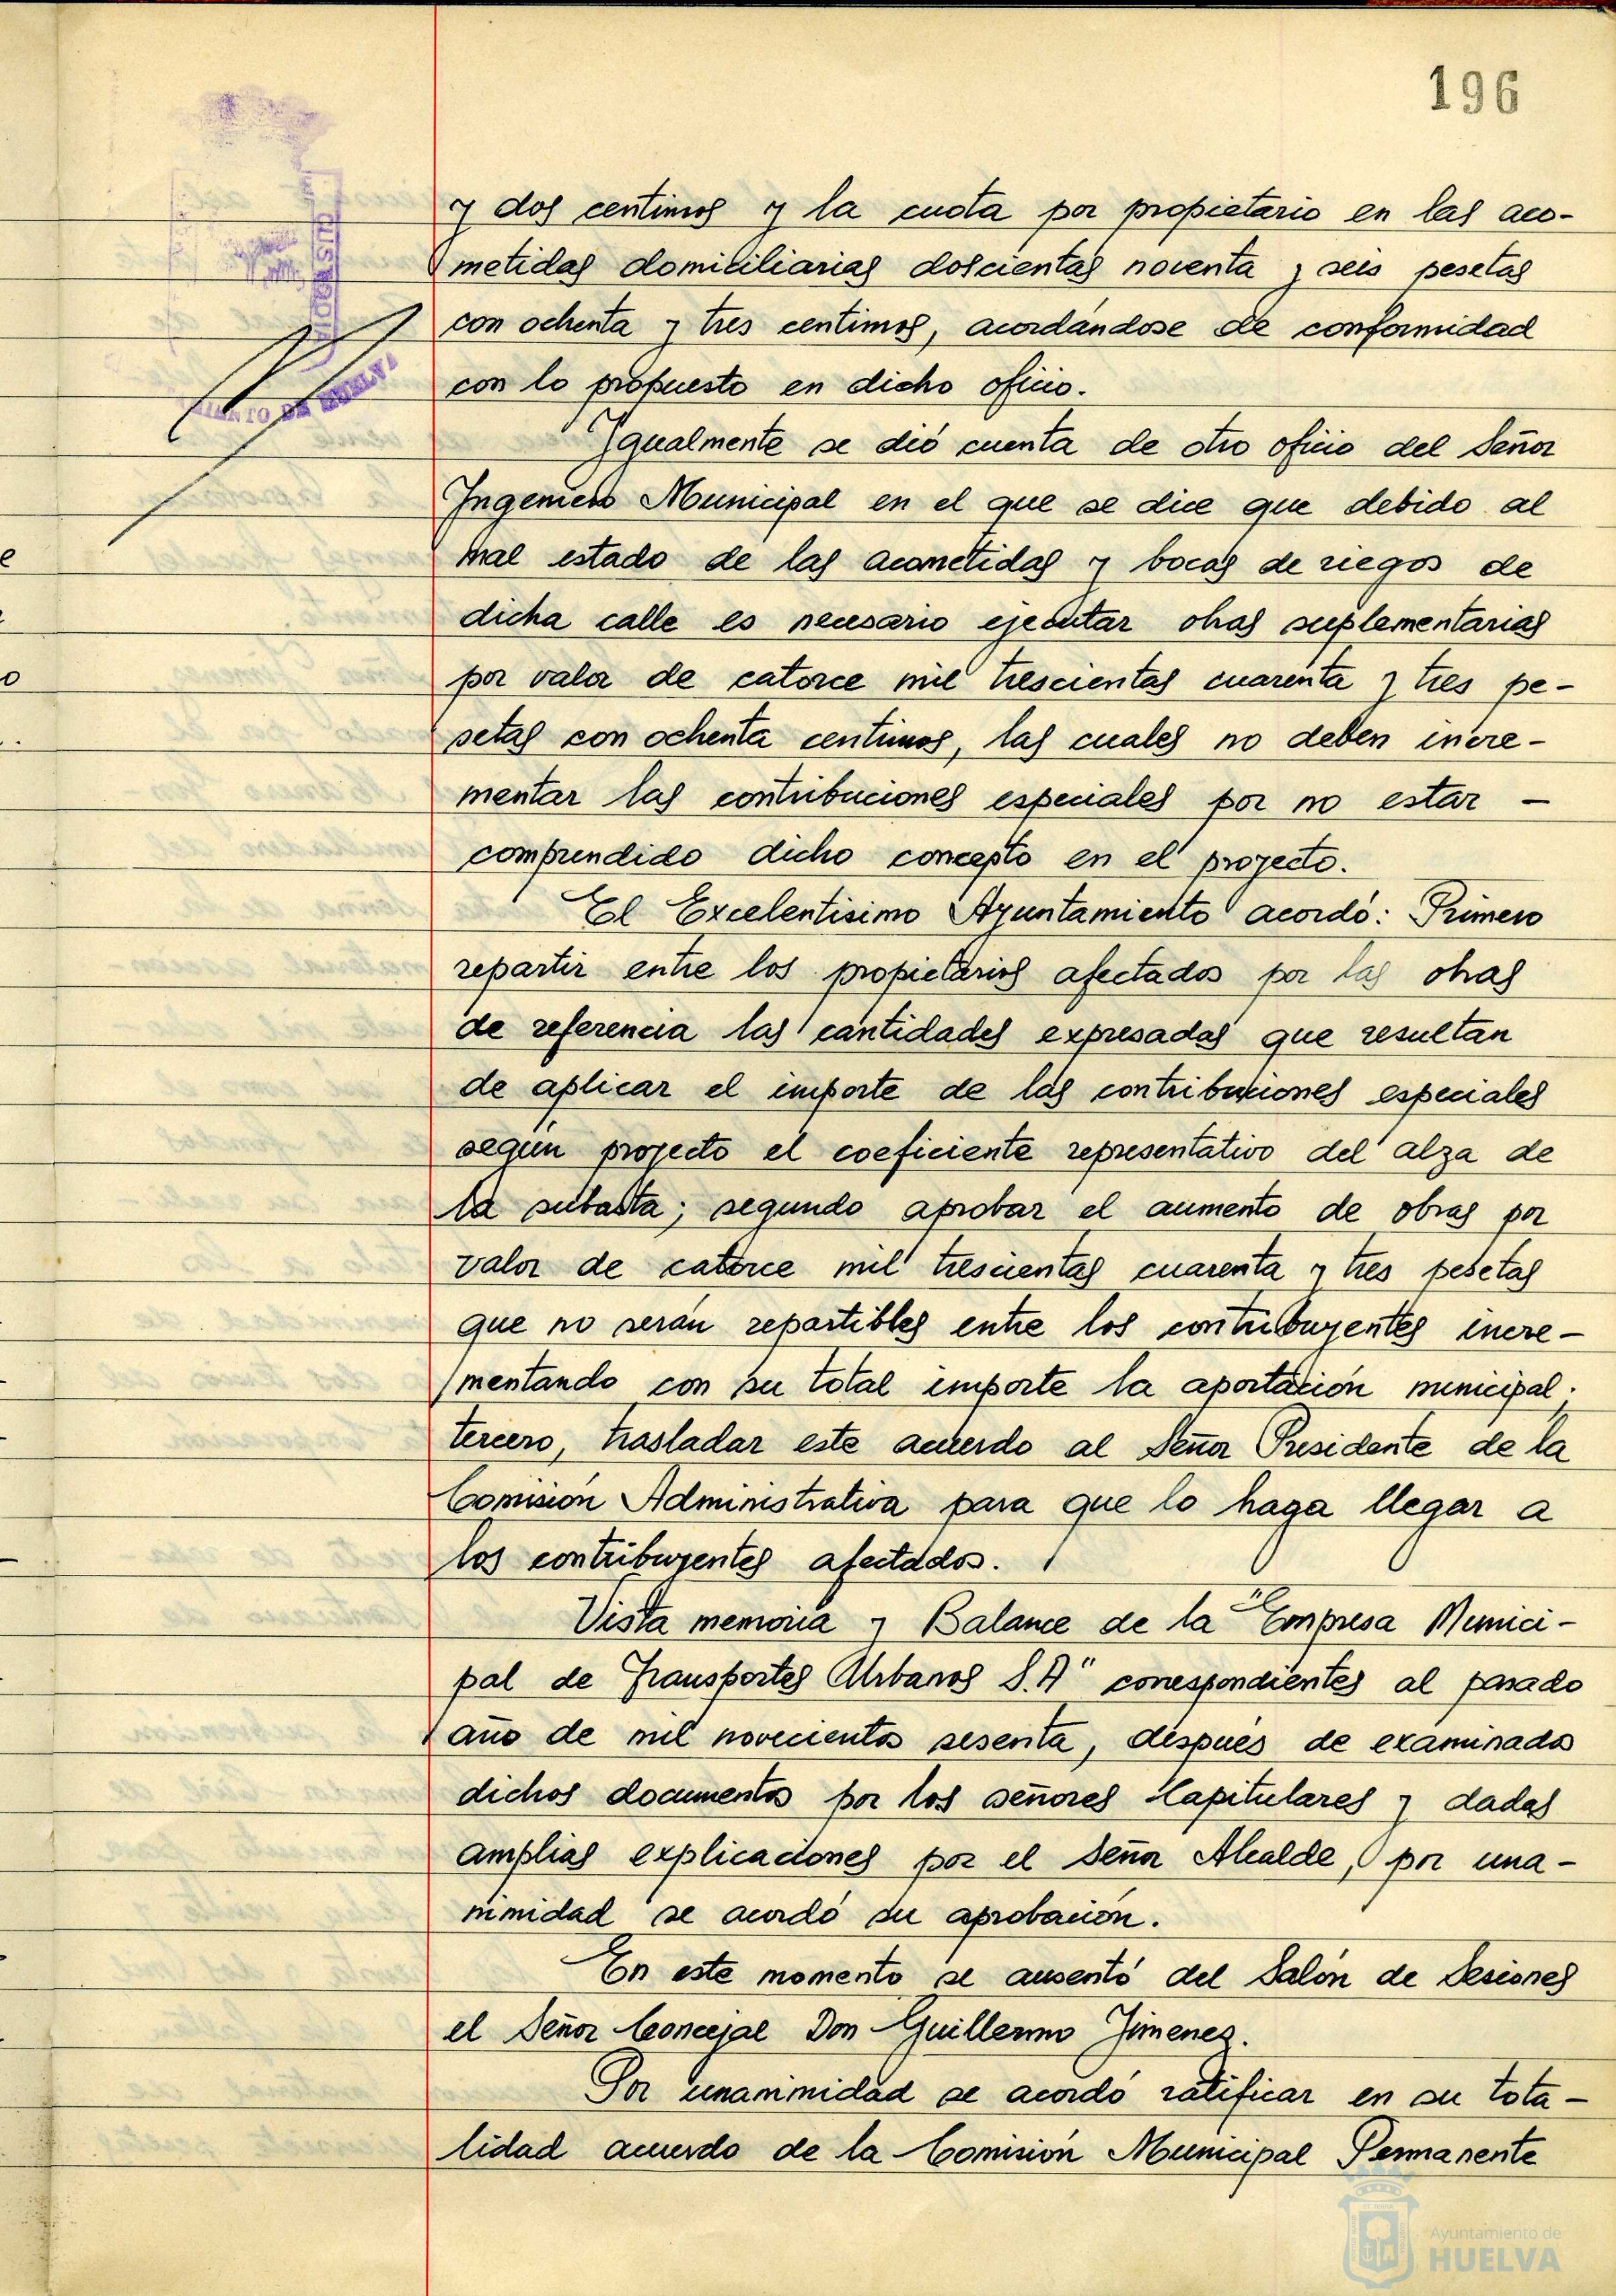 196
y dos centimos y la cuota por propietario en las aco-
metidas domiciliarias doscientas noventa y seis pesetas
con ochenta y tres centimos, acordándose de conformidad
con lo propuesto en dicho oficio.
Igualmente se dió cuenta de otro oficio del Señor
Ingeniero Municipal en el que se dice que debido al
mal estado de las acometidas y bocas de riegos de
dicha calle es necesario ejecutar obras suplementarias
por valor de catorce mil trescientas cuarenta y tres pe-
setas con ochenta centimos, las cuales no deben incre-
mentar las contribuciones especiales por no estar -
comprendido dicho concepto en el proyecto.
El Excelentisimo Ayuntamiento acordó: Primero
repartir entre los propietarios afectados por las obras
de referencia las cantidades expresadas que resultan
de aplicar el importe de las contribuciones especiales
según proyecto el coeficiente representativo del alza de
la subasta; segundo aprobar el aumento de obras por
valor de catorce mil trescientas cuarenta y tres pesetas
que no serán repartibles entre los contribuyentes incre-
mentando con su total importe la aportación municipal.
tercero, trasladar este acuerdo al Señor Presidente de la
Comisión Administrativa para que lo haga llegar a
los contribuyentes afectados.
Vista memoria y Balance de la "Empresa Munici-
pal de Transportes Urbanos S.A" correspondientes al pasado
año de mil novecientos sesenta, después de examinados
dichos documentos por los señores Capitulares y dadas
amplias explicaciones por el Señor Alcalde, por una-
nimidad se acordó su aprobación.
En este momento se ausentó del Salón de Sesiones
el Señor Concejal Don Guillermo Jimenez.
Por unanimidad se acordó ratificar en su tota-
lidad acuerdo de la Comisión Municipal Permanente
Ayuntamiento de
HUELVA